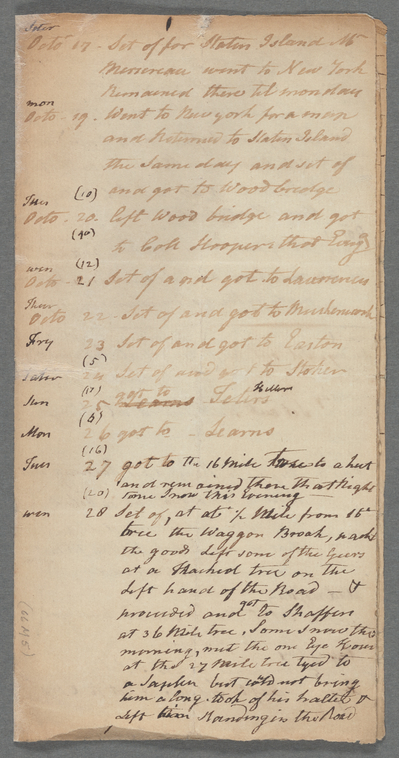 Octor 17 - Set of for Staten Island Mr
Mersereau went to New York
Remained there til monday
mon
Octo - 19 - Went to New york for a man
and Returned to Staten Island
the Same day and set of
(10) and got to Woodbredge
Tues
Octo - 20 left Wood bridge and got
(40)
to Coll Hoopers that Eving
wen (12)
Octo - 21 Set of and got to
Thur
Octo 22 - Set of and got to
Fry 23 Set of and got to Easton
(5)
Satur 24 Set of and got to Stoker
(17) got to Heller
Sun 25 Learns - Telers
(6)
Mon 26 got to - Learns
(16)
Tues 27 got to the 16 Mile tree to a hut
and remained there that Night
(20) some Snow this Evening
wen 28 Set of, at abt 1/2 Mile from 16
tree the Waggon Broak,
the goods Left some of the Geers
at a Marked tree on the
Left hand of the Road - &
proceeded and got to Shaffers
at 36 Mile tree, Some Snow this
morning, met the one Eye Horse
at the 27 Mile tree tyed to
a Saplen but could not bring
him along took of his halter &
Left him Standing in the Road